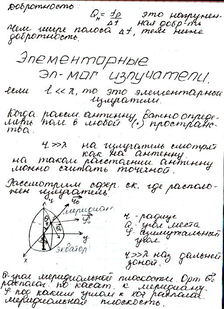 добротность
Q₀ = fp/Δf это нагружен-
ная добр-ть
Чем шире полоса Δf, тем ниже
добротность.
Элементарные
эл-маг излучатели.
если l ≪ λ, то это элементарный
излучатель.
Когда рассм антенну важно опреде-
лить поле в любой (·) простран-
ства.
r ≫ λ на излучатель смотрят
как на антенну
на таком расстоянии антенну
можно считать точечной.
Рассмотрим сфер. ск, где распола-
жен излучатель
меридиан
экватор
r - радиус
θ - угол места
φ - азимутальный
угол
r ≫ λ дальней
зоне.
θ-угол меридиальной плоскости
распологаг. по касат. к меридиану.
φ под каким углом к располаг
меридиальная плоскость.